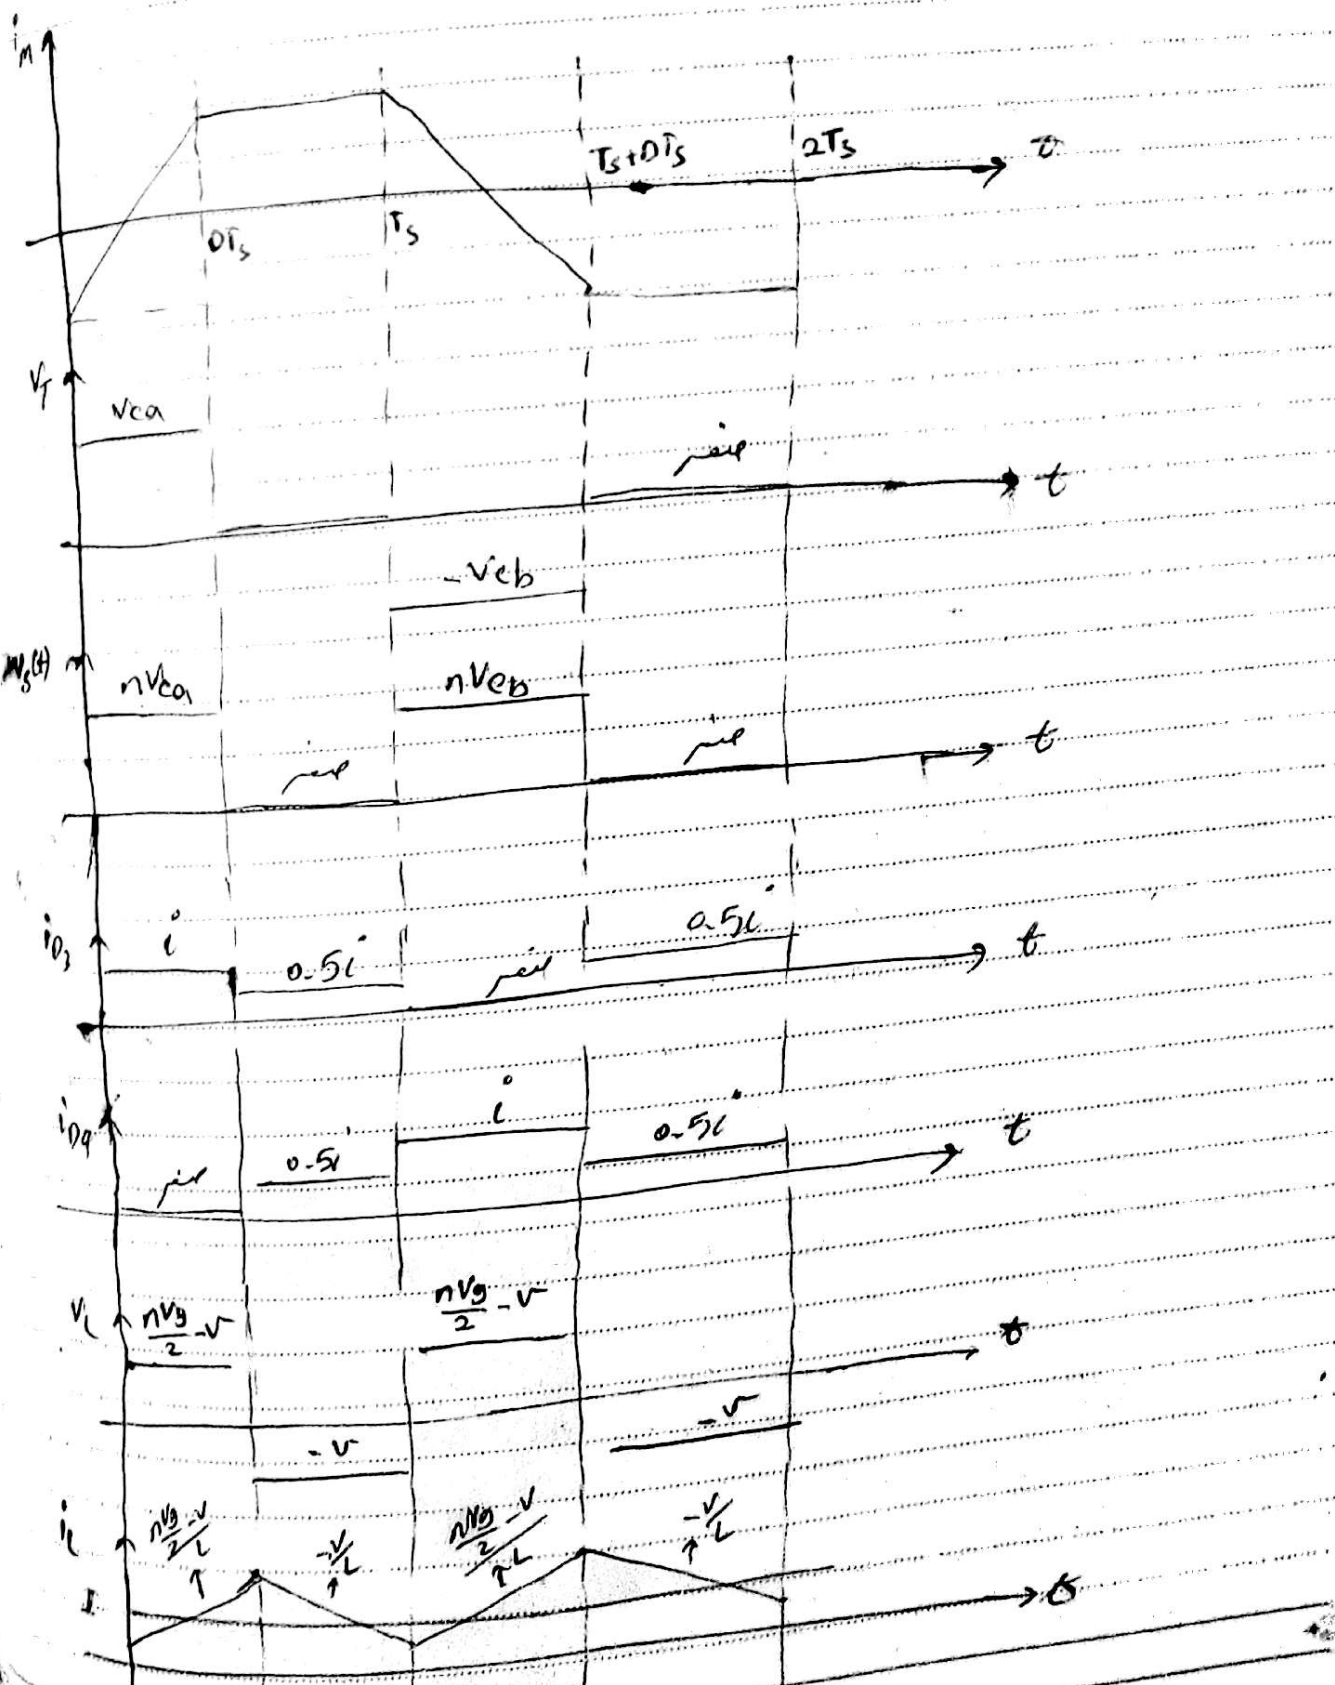 i_M
T_s+DT_s
2T_s
t
DT_s
T_s
V_T
Vca
صفر
t
-Vcb
V_s(t)
nVca
nVcb
صفر
صفر
t
i_D3
i
0.5i
صفر
0.5i
t
i_D4
صفر
0.5i
i
0.5i
t
V_L
nVg/2 - V
nVg/2 - V
t
-V
-V
i_L
nVg/2 - V / L
-V/L
nVg/2 - V / L
-V/L
I
t